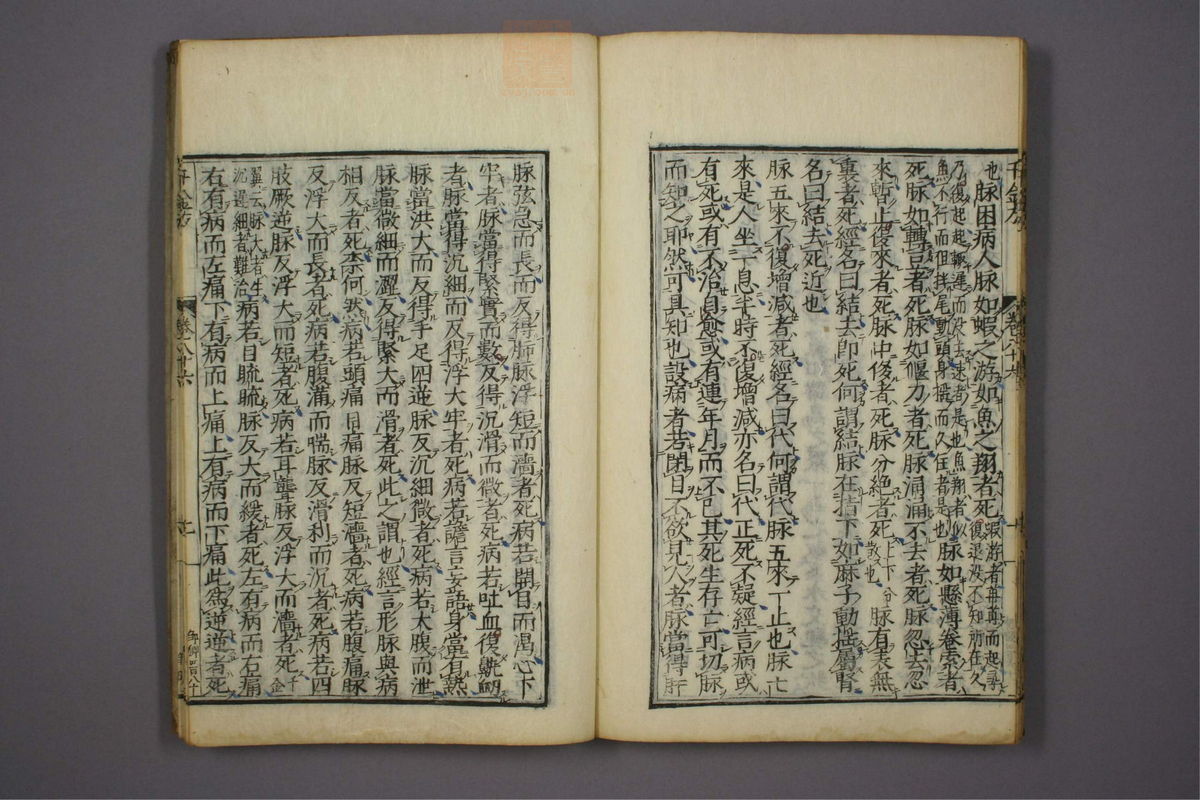 也脉困病人脉如蝦之游如魚之翔者死蝦游者冉冉而起尋復退没不知所在久
乃復起起輒遲而没去速者是也魚翔者似魚不行而但掉尾動頭身揺而久住者是也脉如懸薄卷索者
死脉如轉豆者死脉如偃刀者死脉涌涌不去者死脉忽去忽
來暫止復來者死脉中侈者死脉分絶者死上下分散也脉有表無
裏者死經名曰結去即死何謂結脉在指下如麻子動揺屬腎
名曰結去死近也
脉五來一止不復增減者死經名曰代何謂代脉五來一止也脉七
來是人坐一息半時不復增減亦名曰代正死不疑經言病或
有死或有不治自愈或有連年月而不已其死生存亡可切脉
而知之耶然可具知也設病者若閉目不欲見人者脉當得肝
脉弦急而長而反得肺脉浮短而濇者死病若開目而渴心下
牢者脉當得緊實而數反得沉滑而微者死病若吐血復鼽衂
者脉當得沉細而反得浮大牢者死病若譫言妄語身當有熱
脉當洪大而反得手足四逆脉反沉細微者死病若大腹而泄
脉當微細而澀反得緊大而滑者死此之謂也經言形脉與病
相反者死柰何然病若頭痛目痛脉反短濇者死病若腹痛脉
反浮大而長者死病若腹滿而喘脉反滑利而沉者死病若四
肢厥逆脉反浮大而短者死病若耳聾脉反浮大而濇者死千金
翼云脉大者生沉遲細者難治病若目䀮䀮脉反大而緩者死左有病而右痛
右有病而左痛下有病而上痛上有病而下痛此為逆逆者死
千金方
卷二八